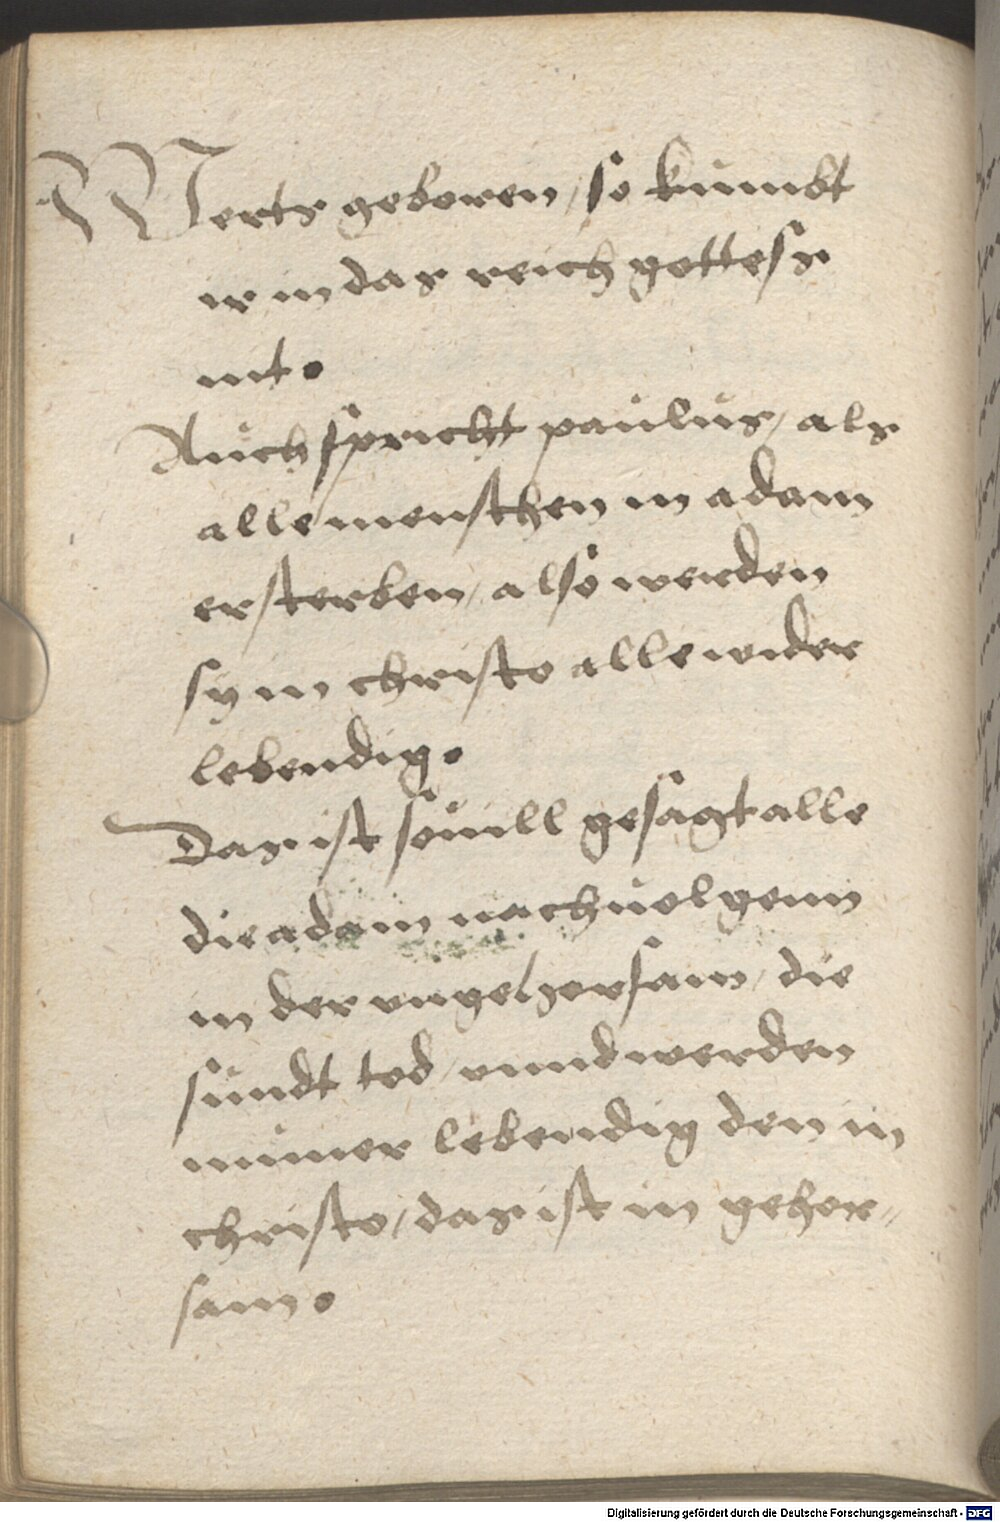 Werts geboren / so kůmbt
ir in das reich gottess
nit.
Aůch spricht paůlus / als
alle menschen in adam
ersterben / also werden
sy in christo alle wider
lebendig.
Das ist souill gesagt alle
die adam nachůolgenn
in der vngehorsam / die
sůndt tod / vnnd werden
nimer lebendig den in
christo / das ist in gehor=
sam.
Digitalisierung gefördert durch die Deutsche Forschungsgemeinschaft - DFG